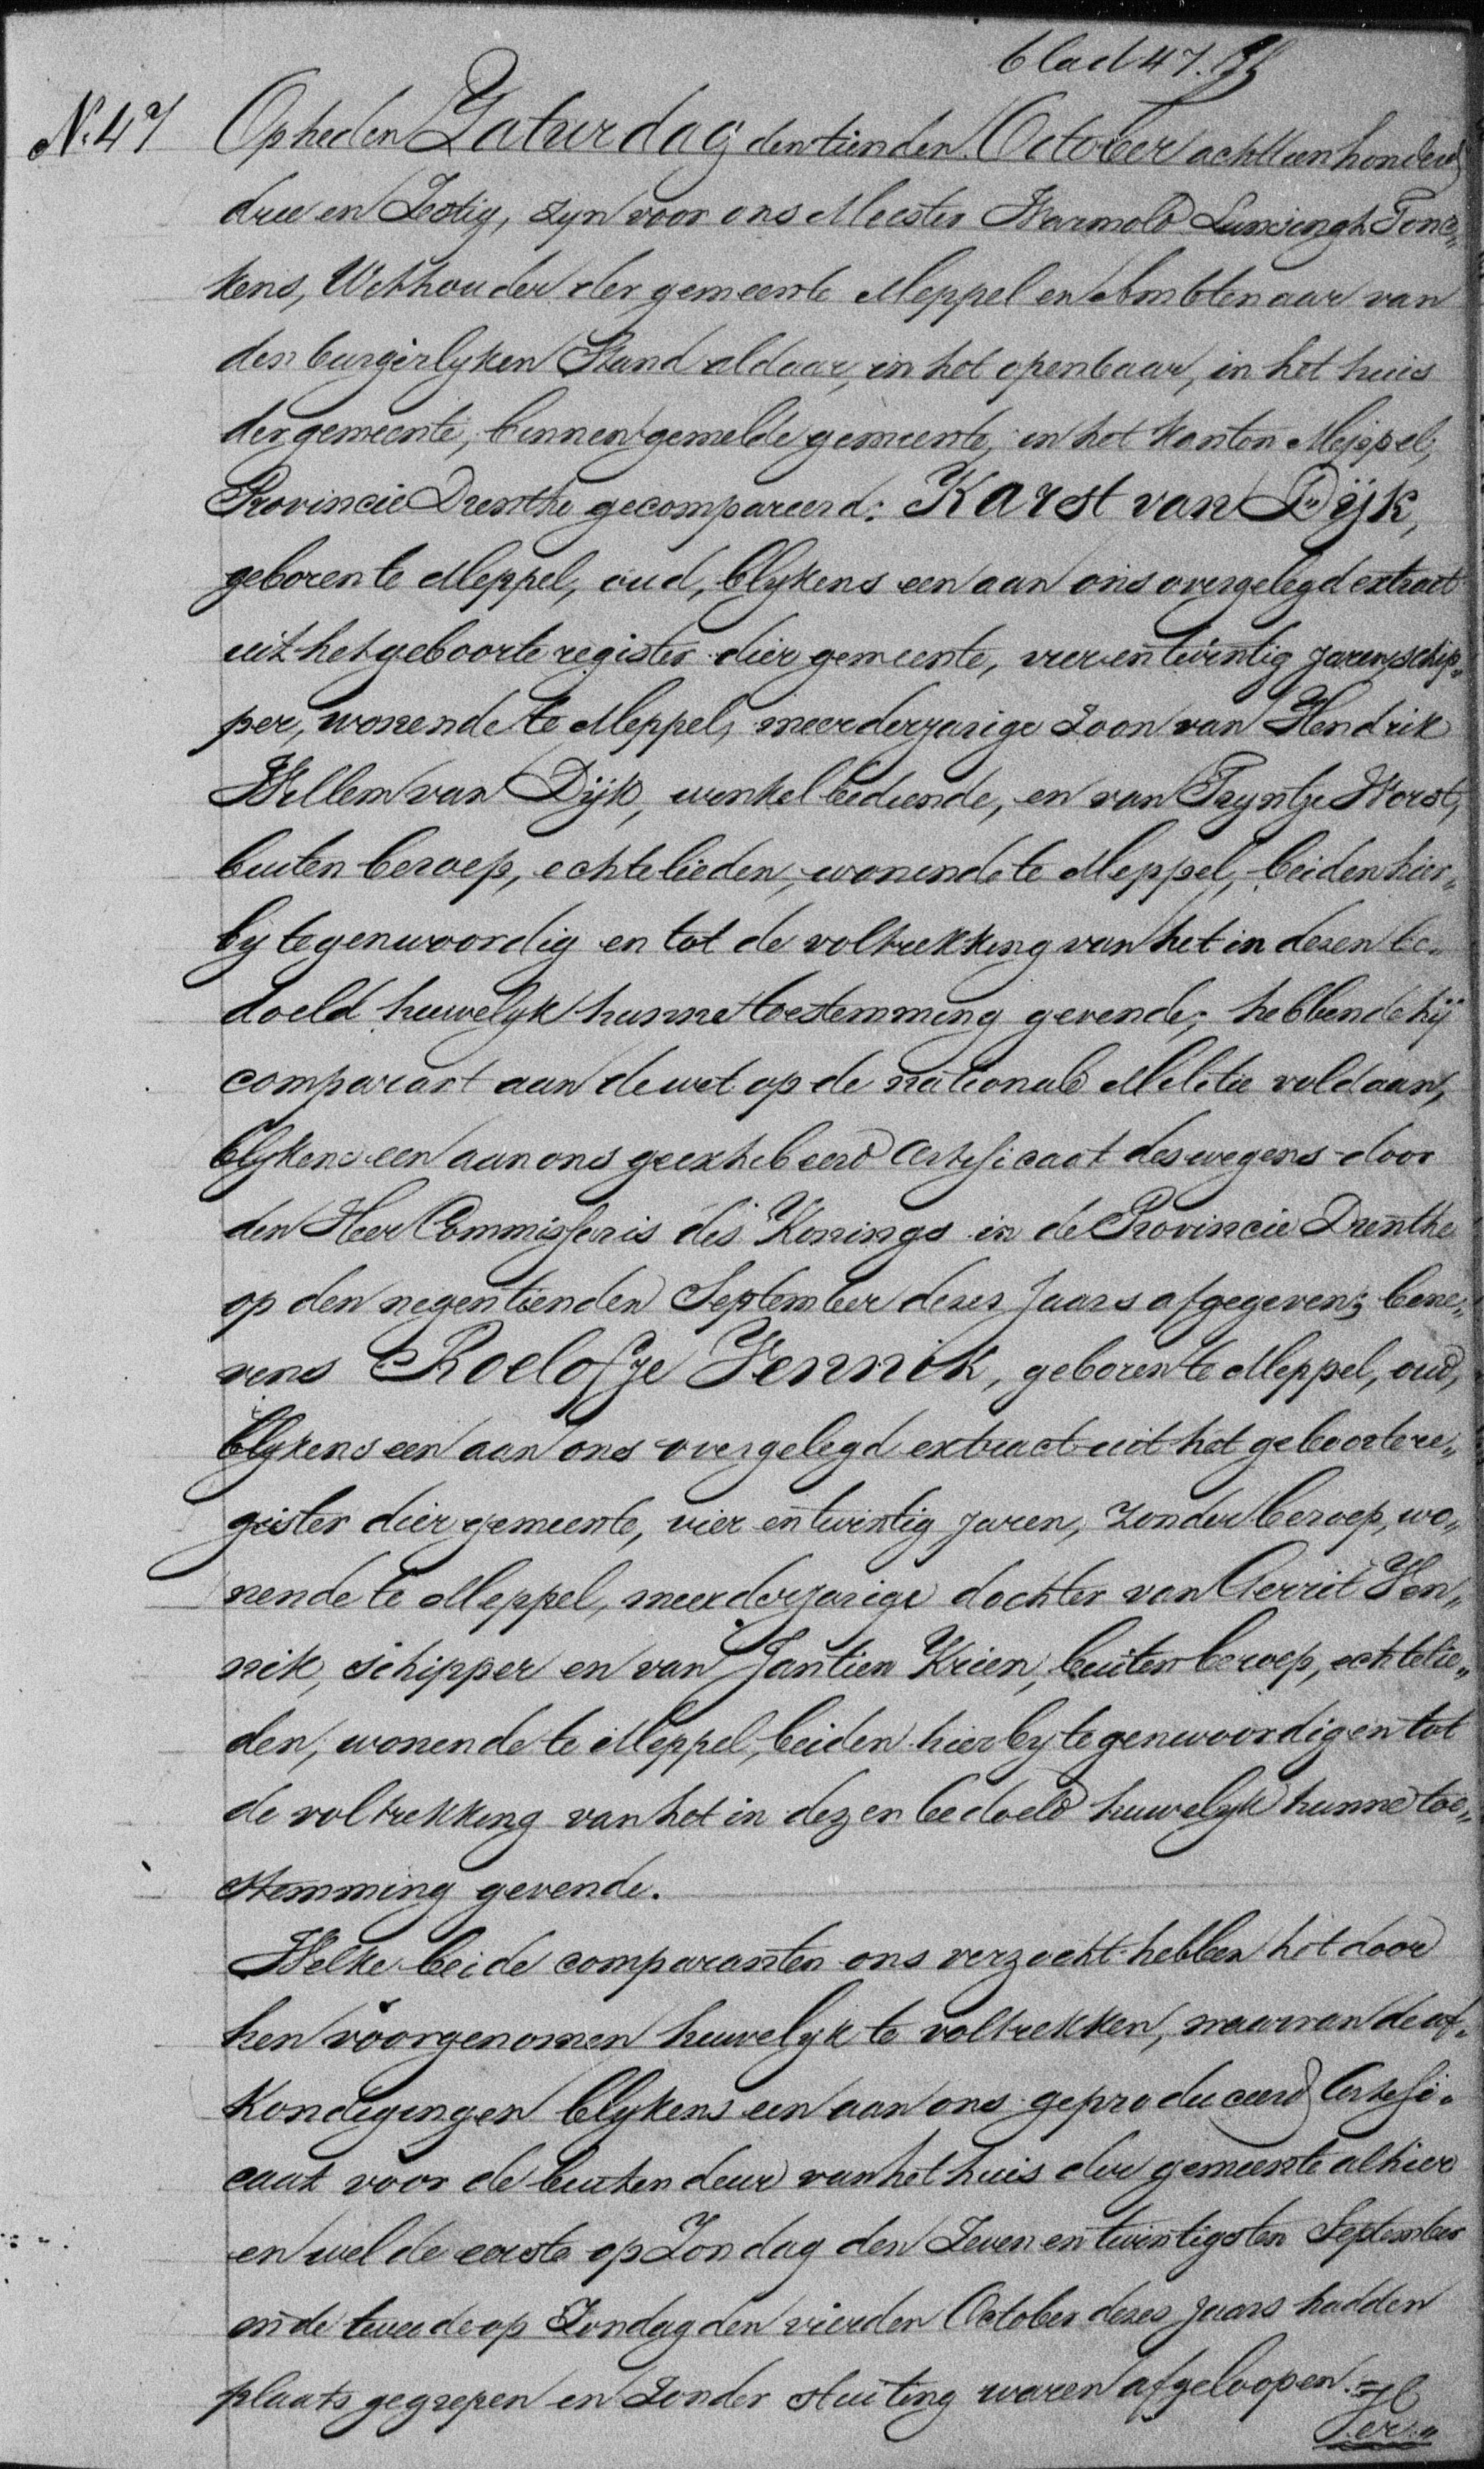 blad 47.
N. 47 Op heden Zaturdag den tienden October achttienhonderd
drie en Zestig, zijn voor ons Meester Warmold Lunsingh Tonc„
kens, Wethouder der gemeente Meppel en Ambtenaar van
den burgerlyken Stand aldaar, in het openbaar, in het huis
der gemeente, binnen gemelde gemeente, in het kanton Meppel,
Provincie Drenthe gecompareerd: Karst van Dÿk,
geboren te Meppel, oud, blykens een aan ons overgelegd extract
uit het geboorte register dier gemeente, vier en twintig jaren, schip„
per, wonende te Meppel, meerderjarige Zoon van Hendrik
Willem van Dijk, winkelbediende, en van Tryntje Worst,
buiten beroep, echtelieden, wonende te Meppel, beiden hier„
by tegenwoordig en tot de voltrekking van het in dezen be„
doeld huwelyk hunne toestemming gevende; hebbende hij
comparant aan de wet op de nationale Militie voldaan,
blykens een aan ons geexhibeerd Certificaat deswegens door
den Heer Commissaris des Konings in de Provincie Drenthe
op den negentienden September dezes Jaars afgegeven; bene„
vens Roelofje Jennik, geboren te Meppel, oud,
blykens een aan ons overgelegd extract uit het geboortere„
gister dier gemeente, vier en twintig jaren, zonder beroep, wo„
nende te Meppel, meerderjarige dochter van Gerrit Jen„
nik, schipper en van Jantien Krien, buiten beroep, echtelie„
den, wonende te Meppel, beiden hierby tegenwoordig en tot
de voltrekking van het in dezen bedoeld huwelyk hunne toe„
stemming gevende.
Welke beide comparanten ons verzocht hebben het door
hen voorgenomen huwelyk te voltrekken, waarvan de af„
kondigingen blykens een aan ons geproduceerd Certifi„
caat voor de buiten deur van het huis der gemeente alhier
en wel de eerste op Zondag den Zeven en twintigsten September
en de tweede op Zondag den vierden October dezes jaars hadden
plaats gegrepen en Zonder stuiting waren afgeloopen.